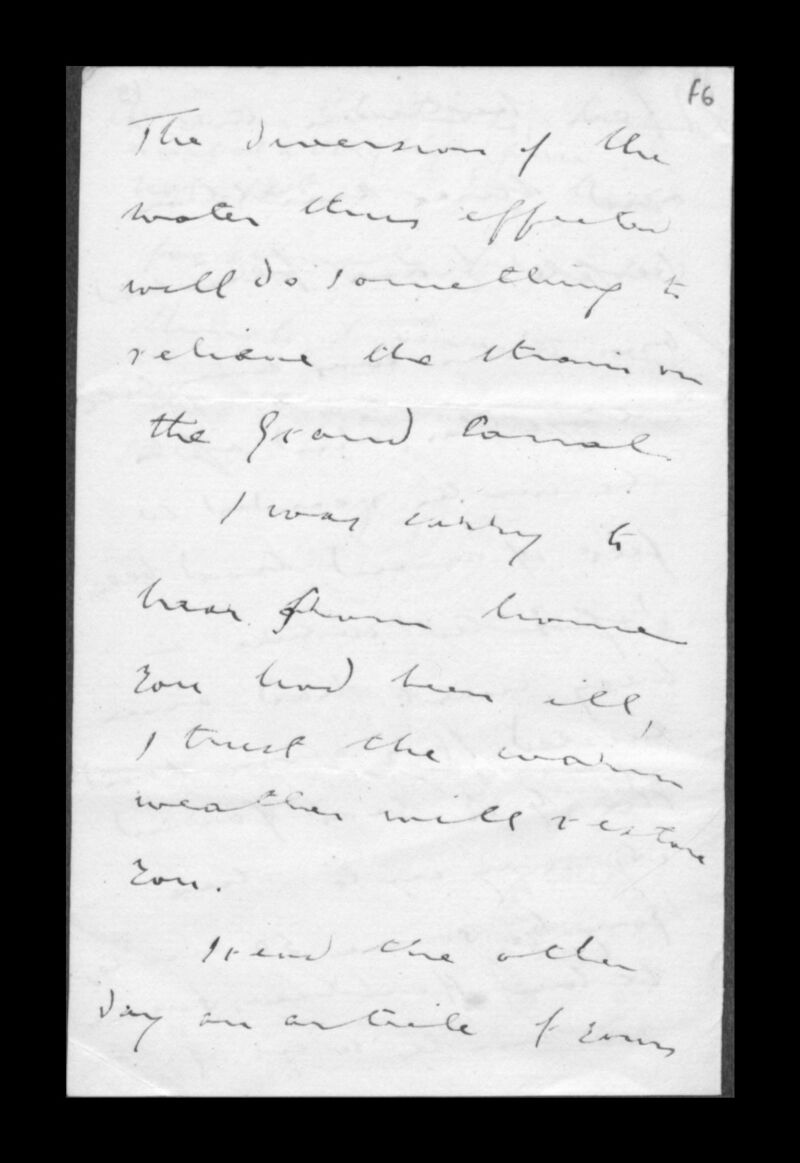 F6
The diversion of the
water thus effected
will do something to
relieve the strain on
the Grand Canal.
I was sorry to
hear from home
you had been ill,
I trust the warm
weather will restore
you.
I read the other
day an article of yours